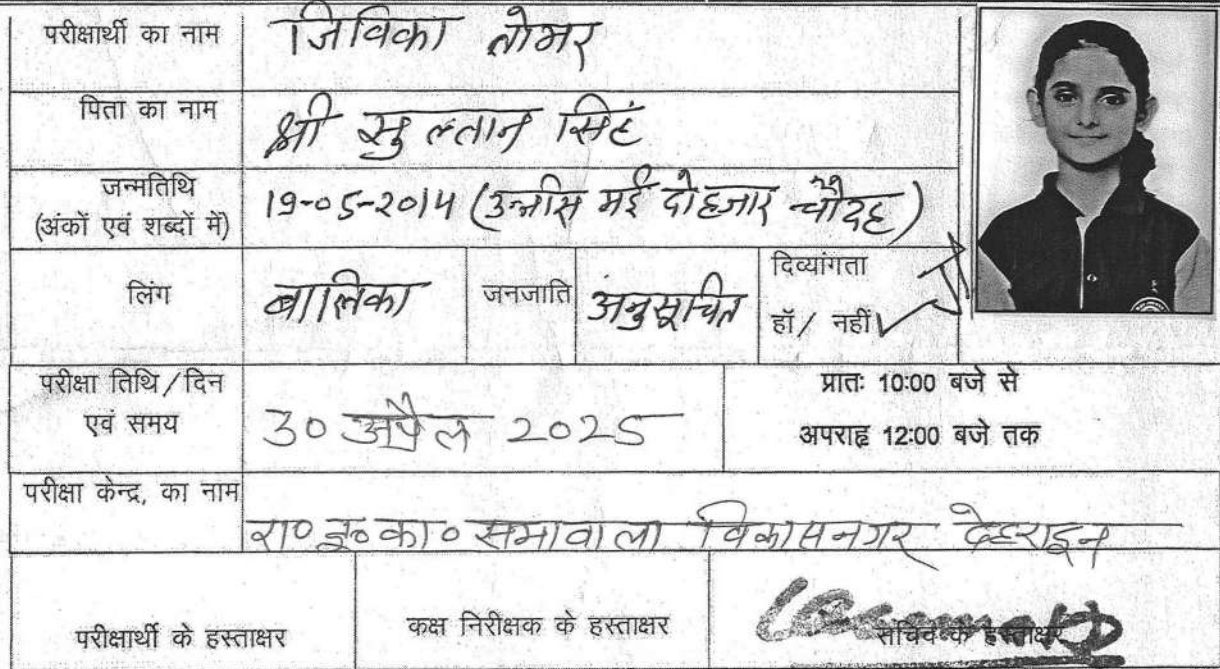 परीक्षार्थी का नाम जिविका तोमर
पिता का नाम श्री सुल्तान सिंह
जन्मतिथि
(अंकों एवं शब्दों में) 19-05-2014 (उन्नीस मई दोहजार चौदह)
लिंग बालिका जनजाति अनुसूचित दिव्यांगता
हॉ / नहीं ✓
परीक्षा तिथि / दिन
एवं समय 30 अप्रैल 2025 प्रातः 10:00 बजे से
अपराह्न 12:00 बजे तक
परीक्षा केन्द्र, का नाम
रा० इ० का० सभावाला विकासनगर देहरादून
परीक्षार्थी के हस्ताक्षर कक्ष निरीक्षक के हस्ताक्षर सचिव के हस्ताक्षर